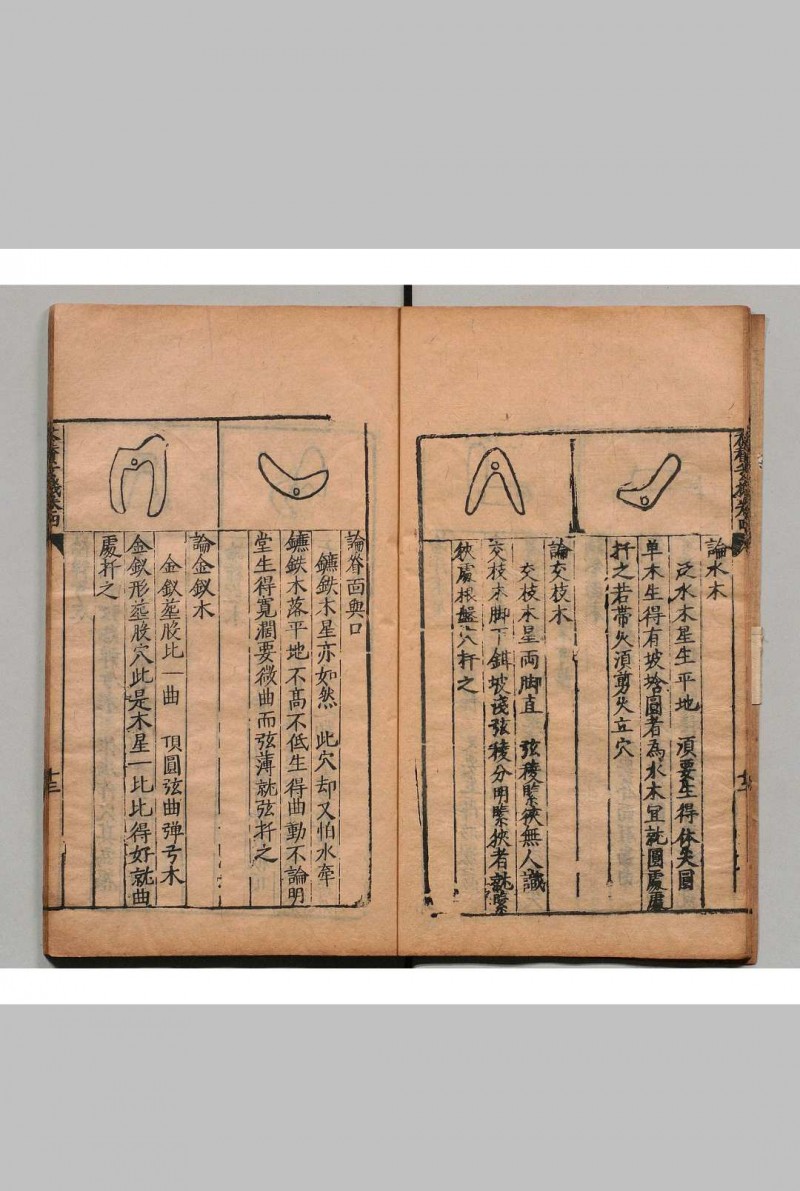 論水木
泛水木星生平地 須要生得体失圓
單木生得有坡圓者為水木宜就圓處
扦之若帶火須剪火立穴
論交枝木
交枝木星両脚直 弦稜緊狹無人識
交枝木脚下鉺坡淺弦稜分明緊狹者就緊
狹處根盤穴扦之
論眷面與口
鐮鉄木星亦如然 此穴却又怕水牽
鐮鉄木落平地不髙不低生得曲動不論明
堂生得寬濶要微曲而弦薄就弦扦之
論金釵木
金釵股比一曲 頂圓弦曲弹弓木
金釵形股穴此是木星一比比得好就曲
處扦之
卷四
十三